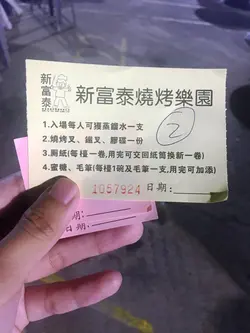 新富泰
新富泰燒烤樂園
②
1.入場每人可獲蒸餾水一支
2.燒烤叉、鐵叉、膠碟一份
3.厠紙(每檯一卷,用完可交回紙筒換新一卷)
4.蜜糖、毛筆(每檯1碗及毛筆一支,用完可加添)
1057924 日期:
日期: